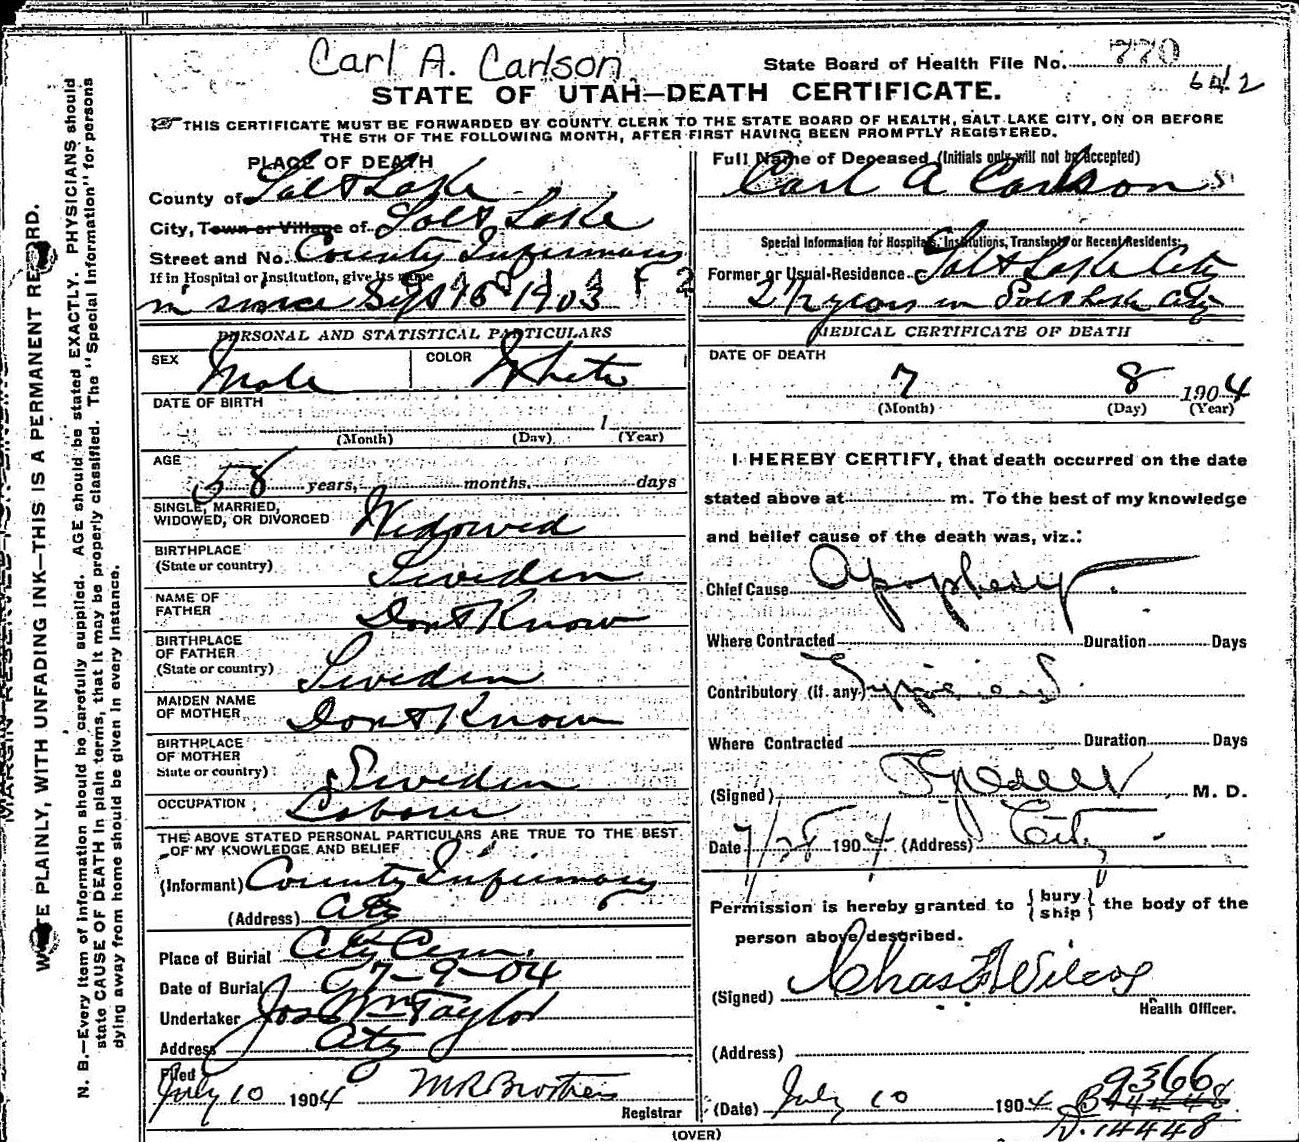 Carl A. Carlson
State Board of Health File No. 770
6412
STATE OF UTAH—DEATH CERTIFICATE.
THIS CERTIFICATE MUST BE FORWARDED BY COUNTY CLERK TO THE STATE BOARD OF HEALTH, SALT LAKE CITY, ON OR BEFORE
THE 5TH OF THE FOLLOWING MONTH, AFTER FIRST HAVING BEEN PROMPTLY REGISTERED.
PLACE OF DEATH
County of Salt Lake
City, Town or Village of Salt Lake
Street and No. County Infirmary
If in Hospital or Institution, give its name
in since Sept 16 1903
PERSONAL AND STATISTICAL PARTICULARS
SEX Male COLOR White
DATE OF BIRTH
1
(Month) (Day) (Year)
AGE
58 years, months, days
SINGLE, MARRIED,
WIDOWED, OR DIVORCED Widowed
BIRTHPLACE
(State or country) Sweden
NAME OF
FATHER Dont Know
BIRTHPLACE
OF FATHER
(State or country) Sweden
MAIDEN NAME
OF MOTHER Dont Know
BIRTHPLACE
OF MOTHER
State or country) Sweden
OCCUPATION Laborer
THE ABOVE STATED PERSONAL PARTICULARS ARE TRUE TO THE BEST
OF MY KNOWLEDGE AND BELIEF
(Informant) County Infirmary
(Address) City
Place of Burial City Cem.
Date of Burial 7-9-04
Undertaker Jos Wm Taylor
Address City
Filed
July 10 1904 M R Brothers
Registrar
Full Name of Deceased (Initials only will not be accepted)
Carl A Carlson
Special Information for Hospitals, Institutions, Transients or Recent Residents:
Former or Usual Residence Salt Lake City
2 1/2 years in Salt Lake City
MEDICAL CERTIFICATE OF DEATH
DATE OF DEATH
7 8 1904
(Month) (Day) (Year)
I HEREBY CERTIFY, that death occurred on the date
stated above at m. To the best of my knowledge
and belief cause of the death was, viz.:
Chief Cause Apoplexy
Where Contracted Duration Days
Contributory (If any)
Where Contracted Duration Days
(Signed) M. D.
Date 7/28 1904 (Address) City
Permission is hereby granted to {bury
ship} the body of the
person above described.
(Signed) Chas F Wilcox
Health Officer.
(Address)
(Date) July 10 1904
9366
D. 14448
(OVER)
MARGIN RESERVED FOR BINDING
WRITE PLAINLY, WITH UNFADING INK—THIS IS A PERMANENT RECORD.
N. B.—Every item of information should be carefully supplied. AGE should be stated EXACTLY. PHYSICIANS should
state CAUSE OF DEATH in plain terms, that it may be properly classified. The "Special Information" for persons
dying away from home should be given in every instance.